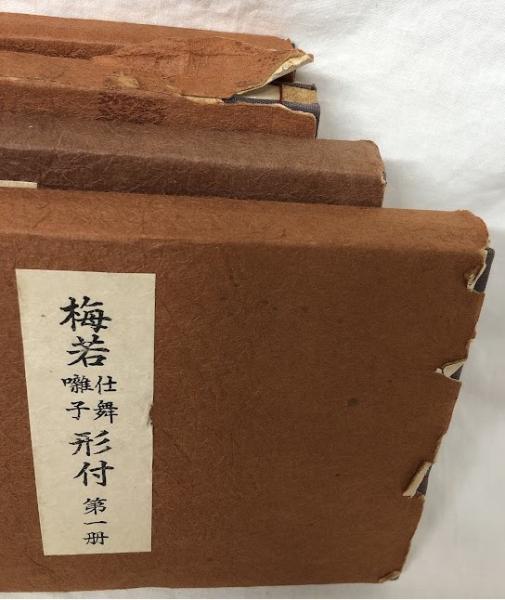 梅若仕舞囃子形付 第一册